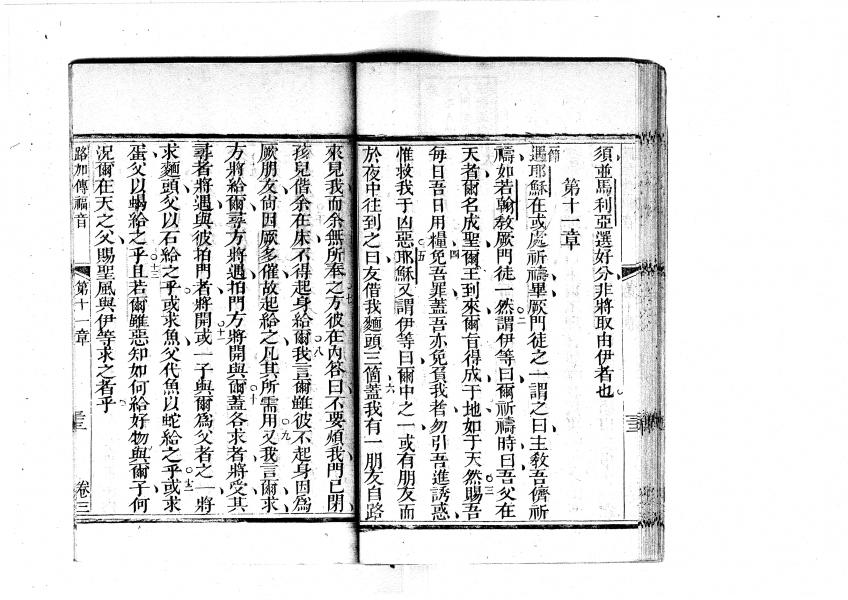 須並馬利亞選好分非將取由伊者也
第十一章
遇耶穌在或處祈禱畢厥門徒之一謂之曰主教吾儕祈
禱如若翰教厥門徒一然謂伊等曰爾祈禱時曰吾父在
天者爾名成聖爾王到來爾旨得成于地如于天然賜吾
每日吾日用糧免吾罪蓋吾亦免負我者勿引吾進誘惑
惟救我于凶惡耶穌又謂伊等曰爾中之一或有朋友而
於夜中往到之曰友借我麵頭三箇蓋我有一朋友自路
來見我而余無所奉之方彼在內答曰不要煩我門已閉
孩兒偕余在床不得起身給爾我言爾雖彼不起身因為
厥朋友尚因厥多催故起給之凡其所需用又我言爾求
方將給爾尋方將遇拍門方將開與爾蓋各求者將受其
尋者將遇與彼拍門者將開或一子與爾為父者之一將
求麵頭父以石給之乎或求魚父代魚以蛇給之乎或求
蛋父以蝎給之乎且若爾雖惡知如何給好物與爾子何
況爾在天之父賜聖風與伊等求之者乎
路加傳福音
第十一章
卷三